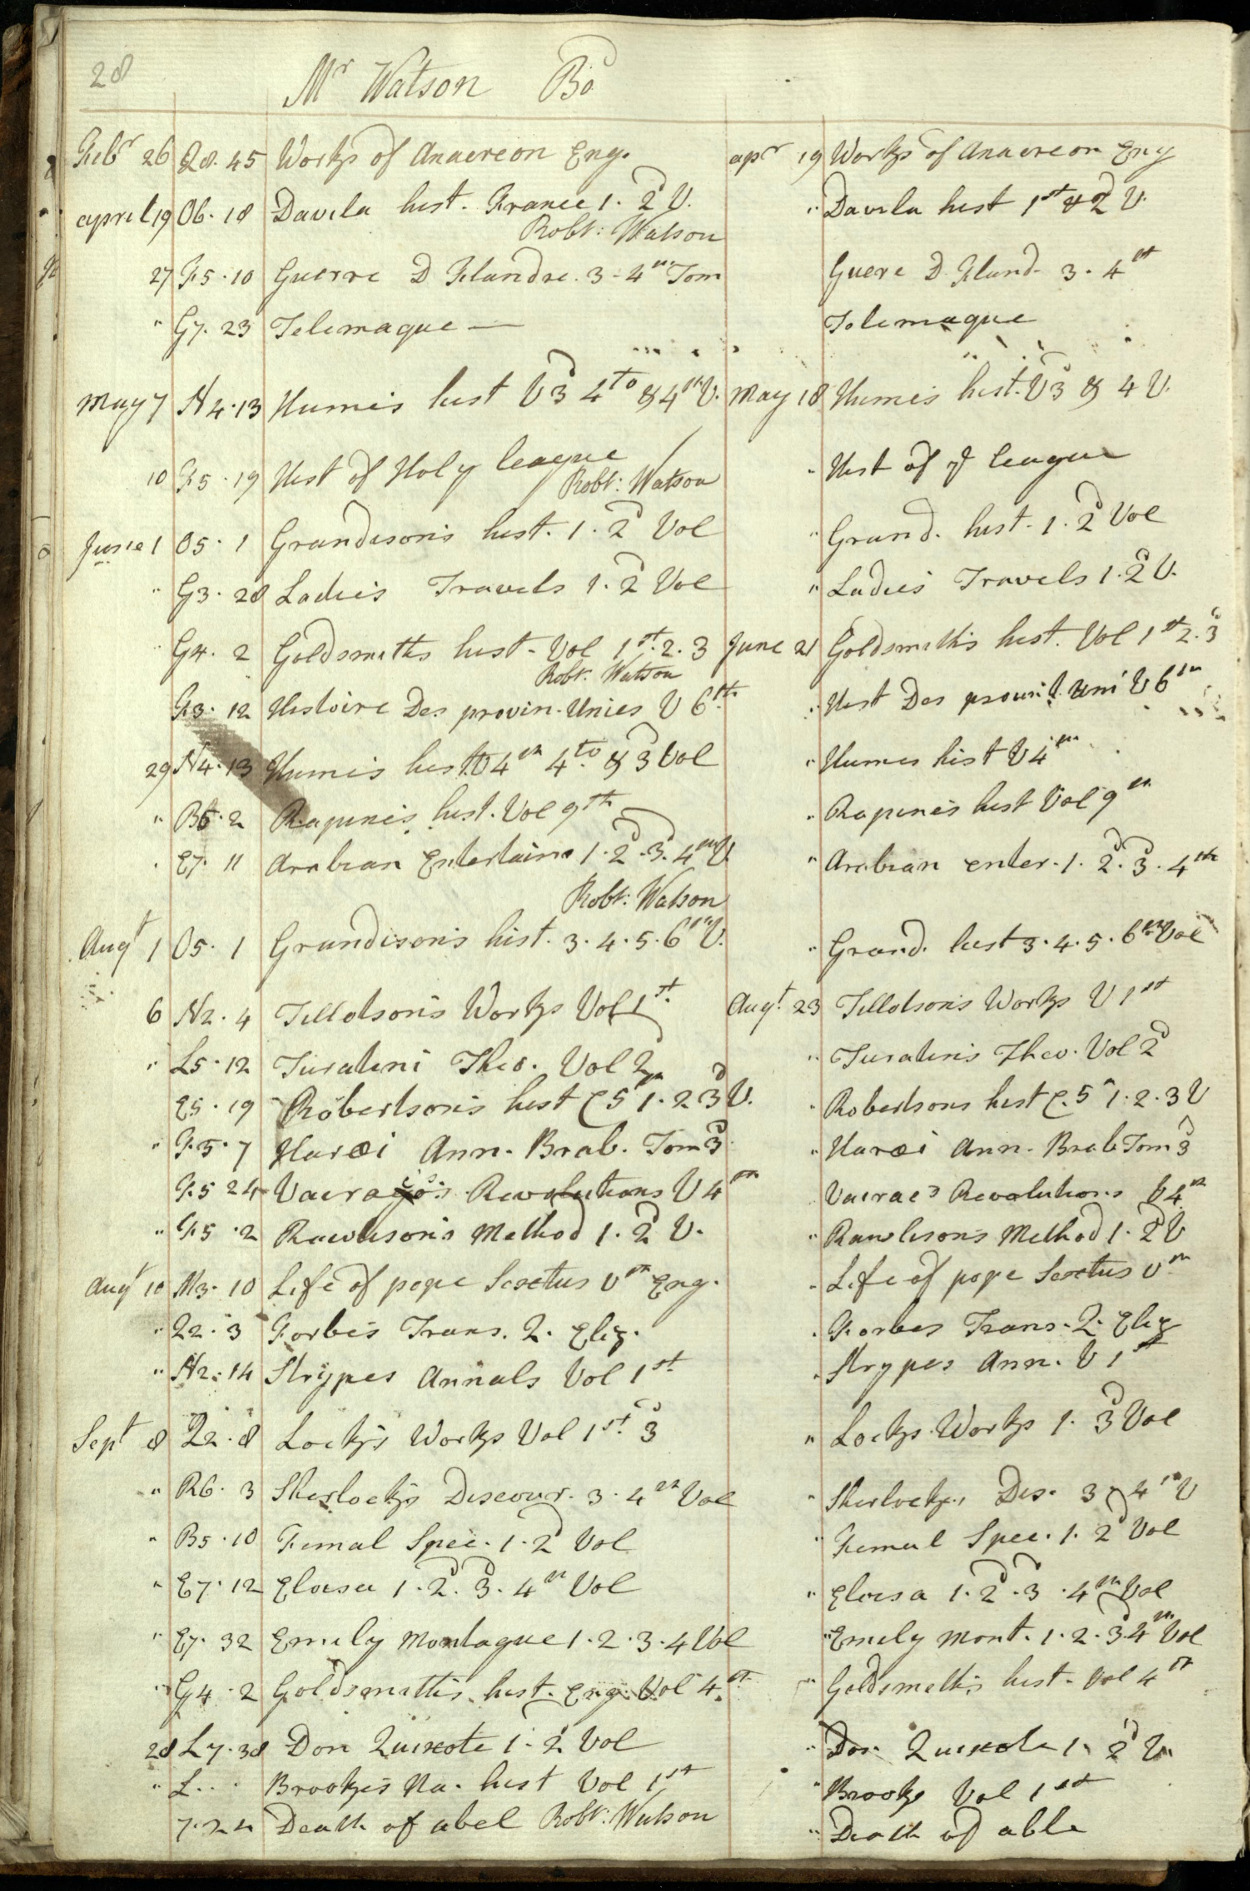 28
Mr Watson Bo
Febr 26 Q8. 45 Works of Anacreon Eng. apr 19 Works of Anacreon Eng
april 19 O6. 18 Davila hist. France 1. 2d V. " Davila hist 1st & 2 V.
Robt: Watson
27 F5. 10 Guerre D Flandre. 3 - 4th Tom Guere D Fland. 3. 4th
" G7. 23 Telemaque — Telemaque
May 7 N4. 13 Humes hist V 3d 4to & 4th V. May 18 Humes hist. V 3d & 4 V.
10 F5. 19 Hist of Holy league " Hist of ye league
Robt: Watson
June 1 O5. 1 Grandison's hist. 1. 2d Vol " Grand. hist. 1. 2d Vol
" G3. 28 Ladies Travels 1. 2d Vol " Ladies Travels 1. 2d V.
" G4. 2 Goldsmiths hist - Vol 1st. 2. 3 June 21 Goldsmith's hist. Vol 1st 2. 3d
Robt: Watson
F3. 12 Histoire Des provin. Unies V 6th " Hist Des provin. Uni V 6th
29 N4. 13 Humes hist V 4th 4to & 3d Vol " Humes hist V 4th
" B5. 2 Rapines hist. Vol 9th " Rapines hist Vol 9th
" E7. 11 Arabian Entertainm 1. 2d. 3d. 4th V. " Arabian enter. 1. 2d. 3d. 4th
Robt: Watson
Augt 1 O5. 1 Grandison's hist. 3. 4. 5. 6th V. " Grand. hist 3. 4. 5. 6th Vol
6 N2. 4 Tillotson's Works Vol 1st. Augt. 23 Tillotson's Works V 1st
" L5. 12 Turatini Theo. Vol 2d " Turatini's Theo. Vol 2d
E5. 19 Robertson's hist C 5th 1. 2 3d V. " Robertsons hist C. 5th 1. 2. 3 V
" F5. 7 Haræi Ann. Brab. Tom 3d " Haræi Ann. Brab Tom 3d
F5 24 Revolutions V 4th Revolutions V 4th
" F5. 2 Rawlison's Method 1. 2d V. " Rawlison's Method 1. 2d V
Augt 10 N3. 10 Life of pope Sextus Vth Eng. " Life of pope Sextus Vth
" Q2. 3 Forbes Trans. Q. Eliz. " Forbes Trans. Q. Eliz
" N2. 14 Strypes Annals Vol 1st " Strypes Ann. V 1st
Sept 8 Q2. 8 Lock's Works Vol 1st. 3d " Locks Works 1. 3d Vol
" R6. 3 Sherlock's Discour. 3. 4th Vol " Sherlocks, Dis. 3. 4th V
" B5. 10 Femal Spec. 1. 2d Vol " Femal Spec. 1. 2d Vol
" E7. 12 Eloisa 1. 2d. 3d. 4th Vol " Eloisa 1. 2d. 3d. 4th Vol
" E7. 32 Emily Montague 1. 2. 3. 4 Vol " Emely Mont. 1. 2. 3. 4th Vol
" G4. 2 Goldsmith's hist. Eng. Vol 4th " Goldsmith's hist. Vol 4th
28 L7. 38 Don Quixote 1. 2d Vol " Don Quixote 1. 2d V.
" L.. Brookes Na. hist Vol 1st " Brooks Vol 1st
7. 24 Death of abel Robt: Watson " Death of able